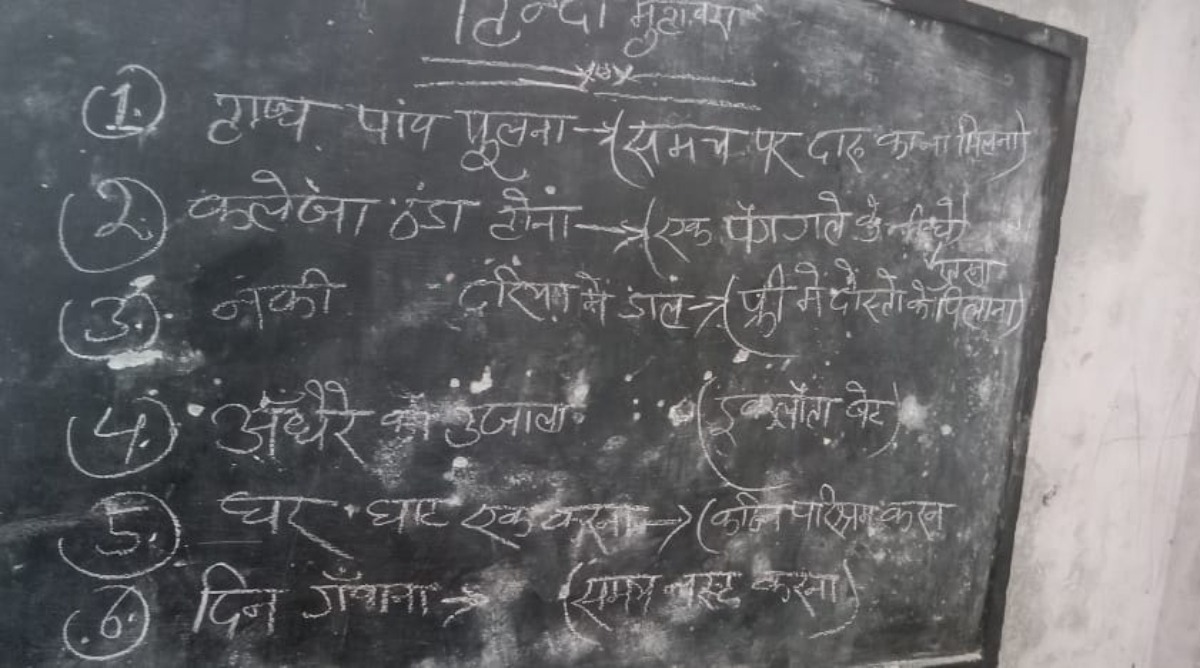 हिन्दी मुहावरा
1. हाथ पांव फूलना → (समय पर दारू का ना मिलना)
2. कलेजा ठंडा होना → (एक पैग गले के नीचे
3. नेकी दरिया में डाल → (फ्री में दोस्तो के पिलाना)
4. अँधेरे का उजाला (इकलौता बेटा)
5. घर घाट एक करना → (कठिन परिश्रम करना
6. दिन गँवाना → (समय नस्ट करना)